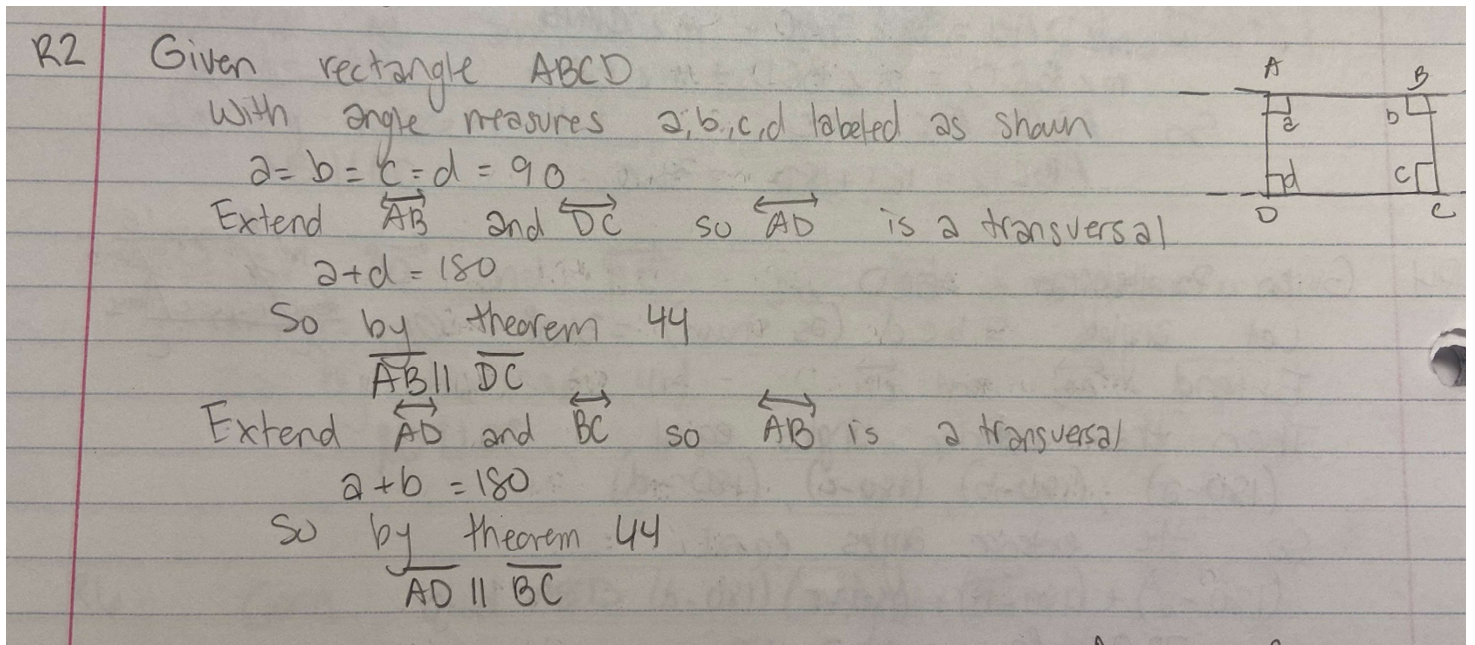 R2 Given rectangle ABCD
With angle measures a, b, c, d labeled as shown
a = b = c = d = 90
Extend AB and DC so AD is a transversal
a + d = 180
So by theorem 44
AB || DC
Extend AD and BC so AB is a transversal
a + b = 180
So by theorem 44
AD || BC
A B
a b
d c
D C